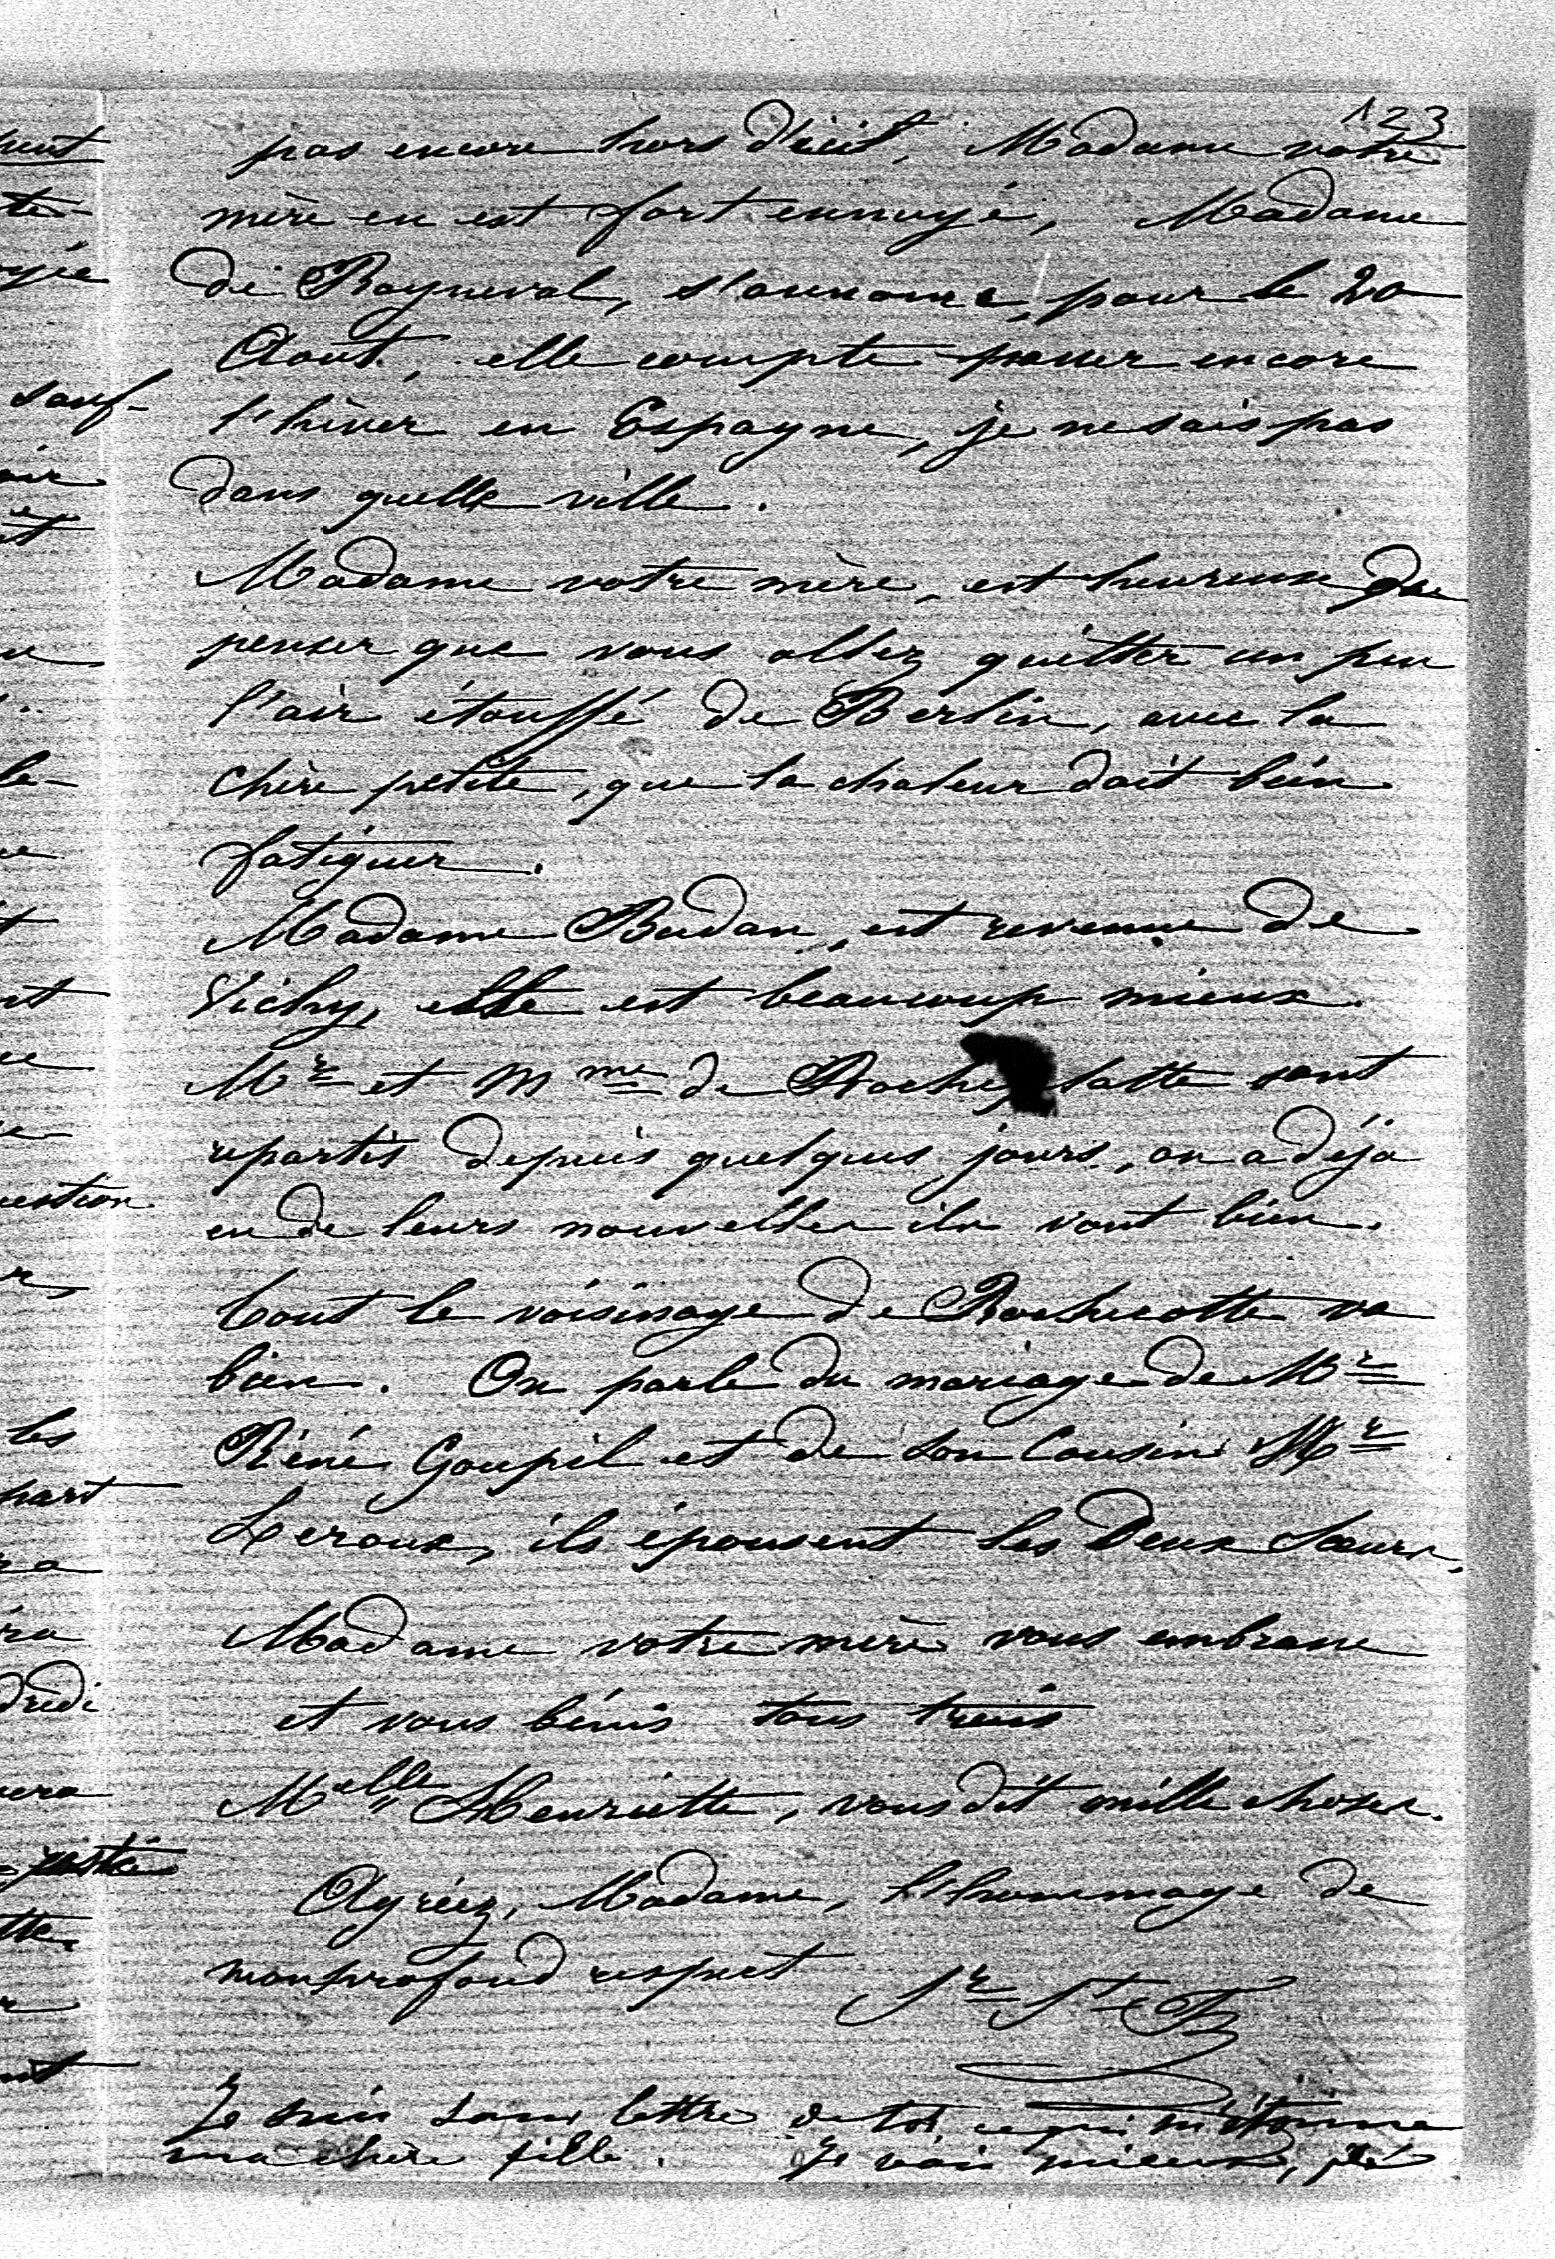 123
pas encore hors d'ici, Madame votre
mère en est fort ennuyé, Madame
de Rayneval, s'annonce, pour le 20
Août, elle compte passer encore
l'hiver en Espagne, je ne sais pas
dans quelle ville.
Madame votre mère, est heureuse de
penser que vous allez quitter un peu
l'air étouffé de Berlin, avec la
chère petite, que la chaleur doit bien
fatiguer.
Madame Budan, est revenue de
Vichy, elle est beaucoup mieux.
Mr et Mme de sont
repartis depuis quelques jours, on a déja
eu de leurs nouvelles ils vont bien.
Tout le voisinage de Rochecotte va
bien. On parle du mariage de Mr
Réné Goupil et de son Cousin Mr
Leroux, ils épousent les Deux Sœurs,
Madame votre mère vous embrasse
et vous bénis tous trois
Melle Henriette, vous dit mille choses.
Agréez, Madame, l'hommage de
mon profond respect
Sr St B
Je suis sans lettre de toi, ce qui m'étonne
ma chère fille. Je vais mieux,